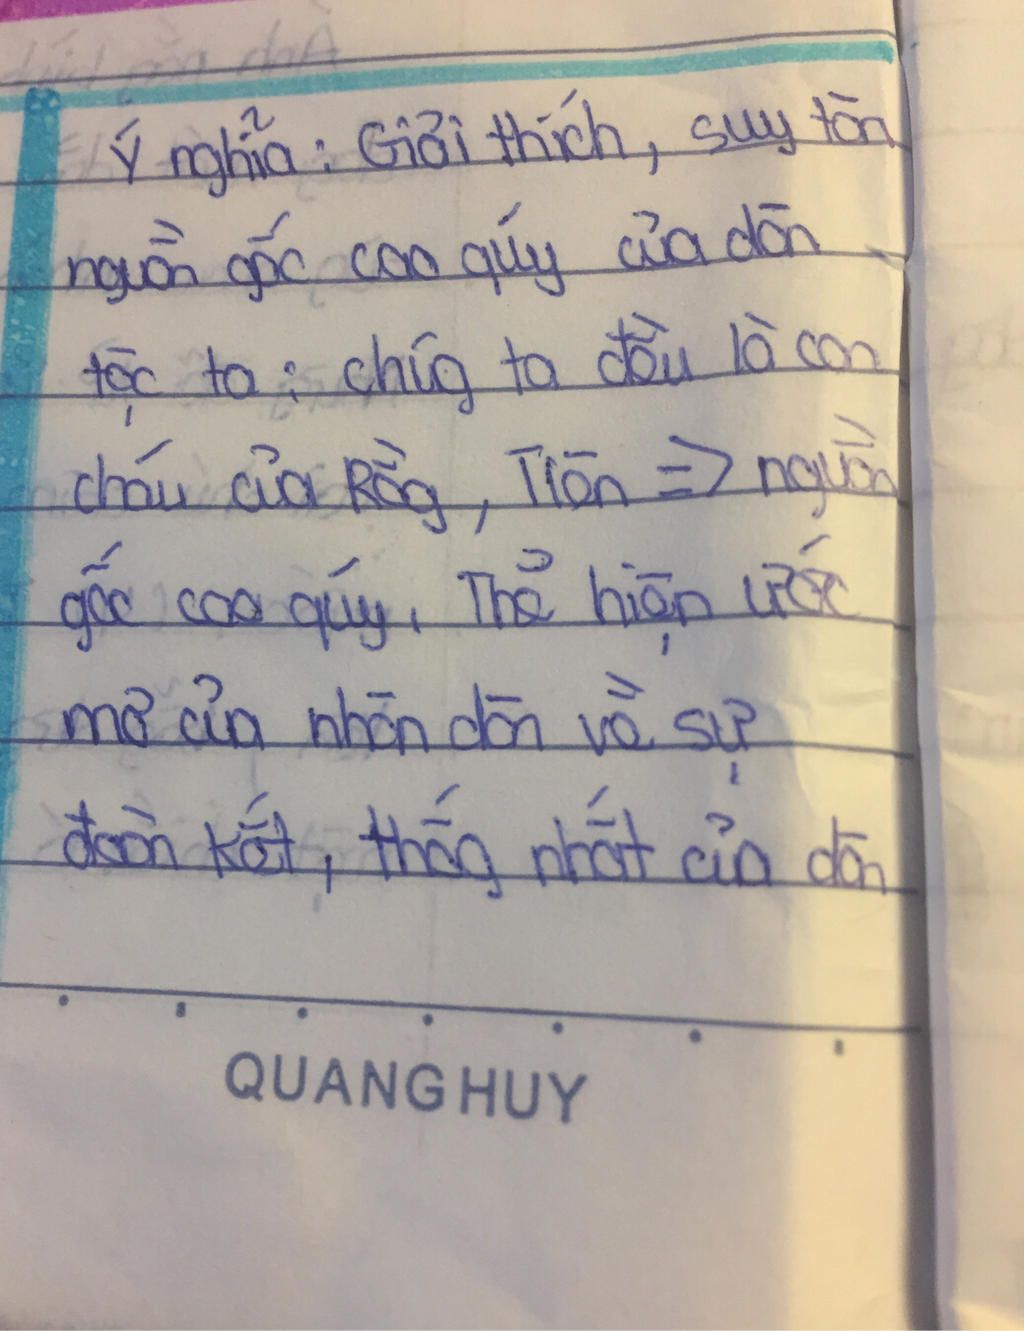 Ý nghĩa: Giải thích, suy tôn
nguồn gốc cao quý của dân
tộc ta: chúg ta đều là con
cháu của Rồg, Tiên => nguồn
gốc cao quý. Thể hiện ước
mơ của nhân dân về sự
đoàn kết, thốg nhất của dân
QUANG HUY